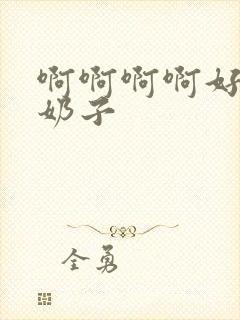 啊啊啊啊好
奶子
全勇